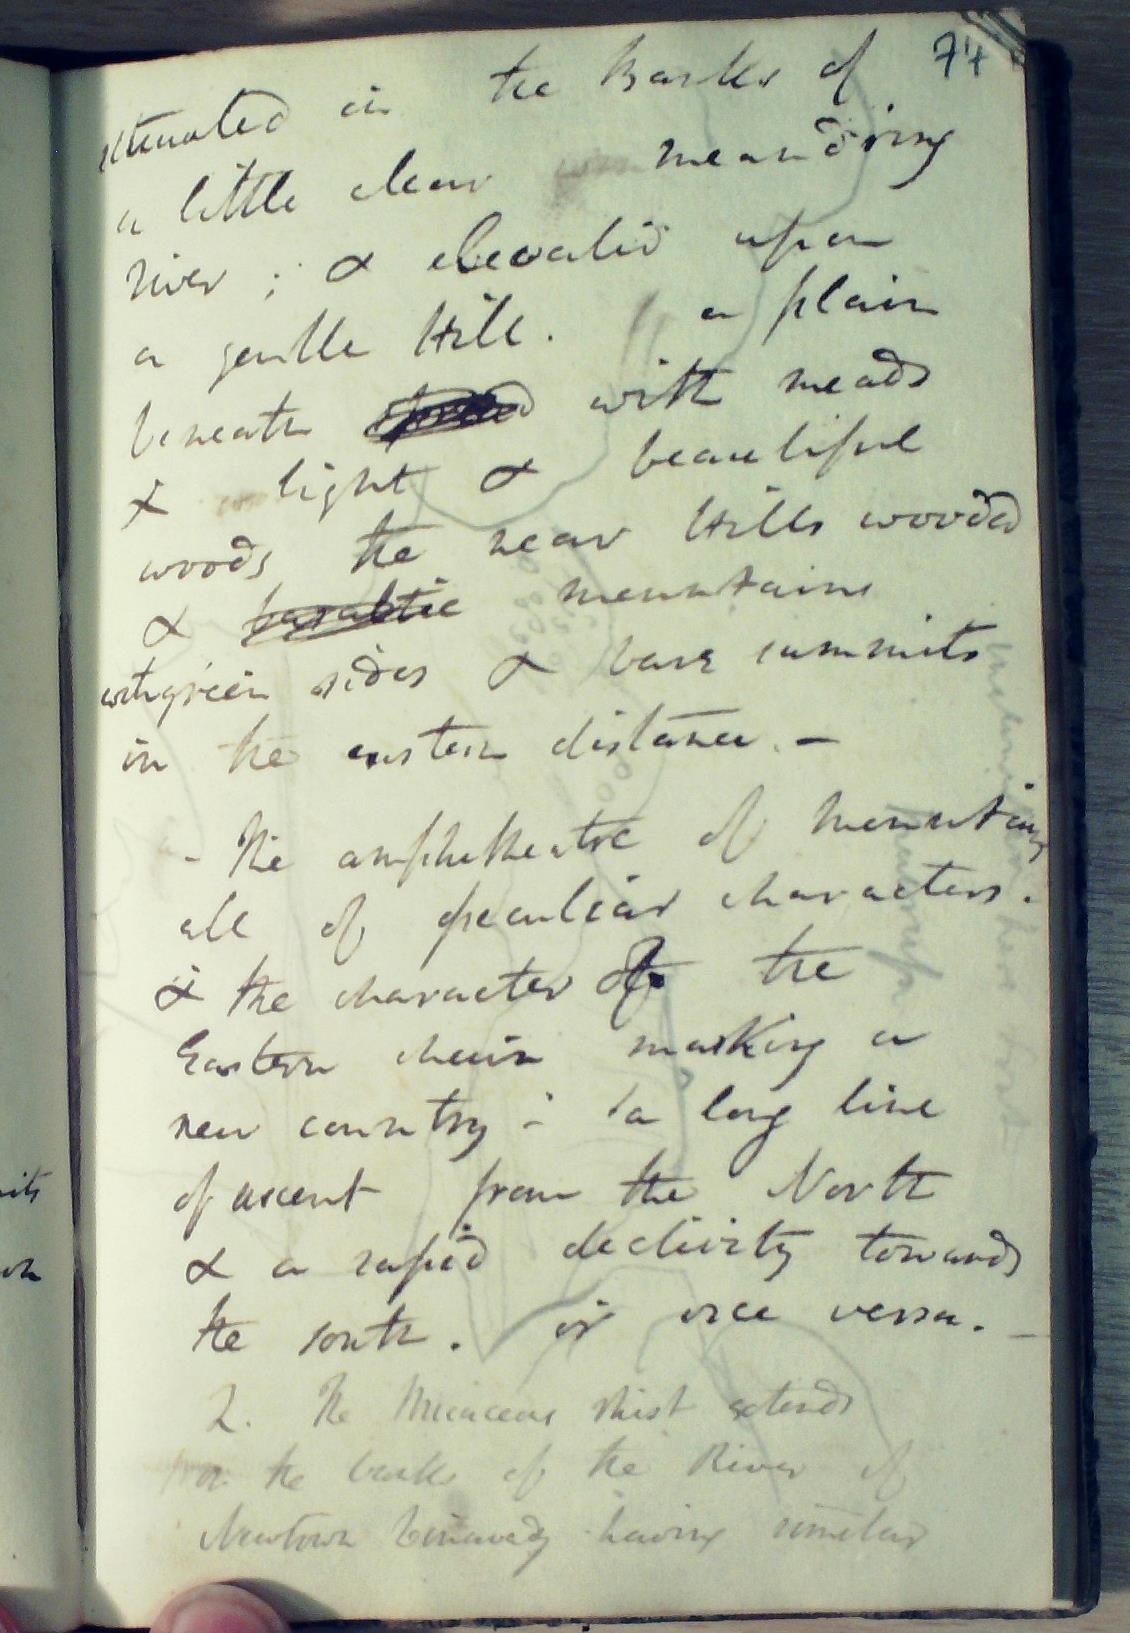 74
situated on the Banks of
a little clear meandring
river ; & elevated upon
a gentle Hill. a plain
beneath with meads
& light & beautiful
woods the near Hills wooded
& basaltic mountains
with green sides & bare summits
in the eastern distance. -
- The amphitheatre of mountains
all of peculiar characters.
& the character of the
Eastern chain marking a
new country : a long line
of ascent from the North
& a rapid declivity towards
the south. or vice versa. -
2. The Micaceous shist extends
on the banks of the River of
Newtown limavady having similar